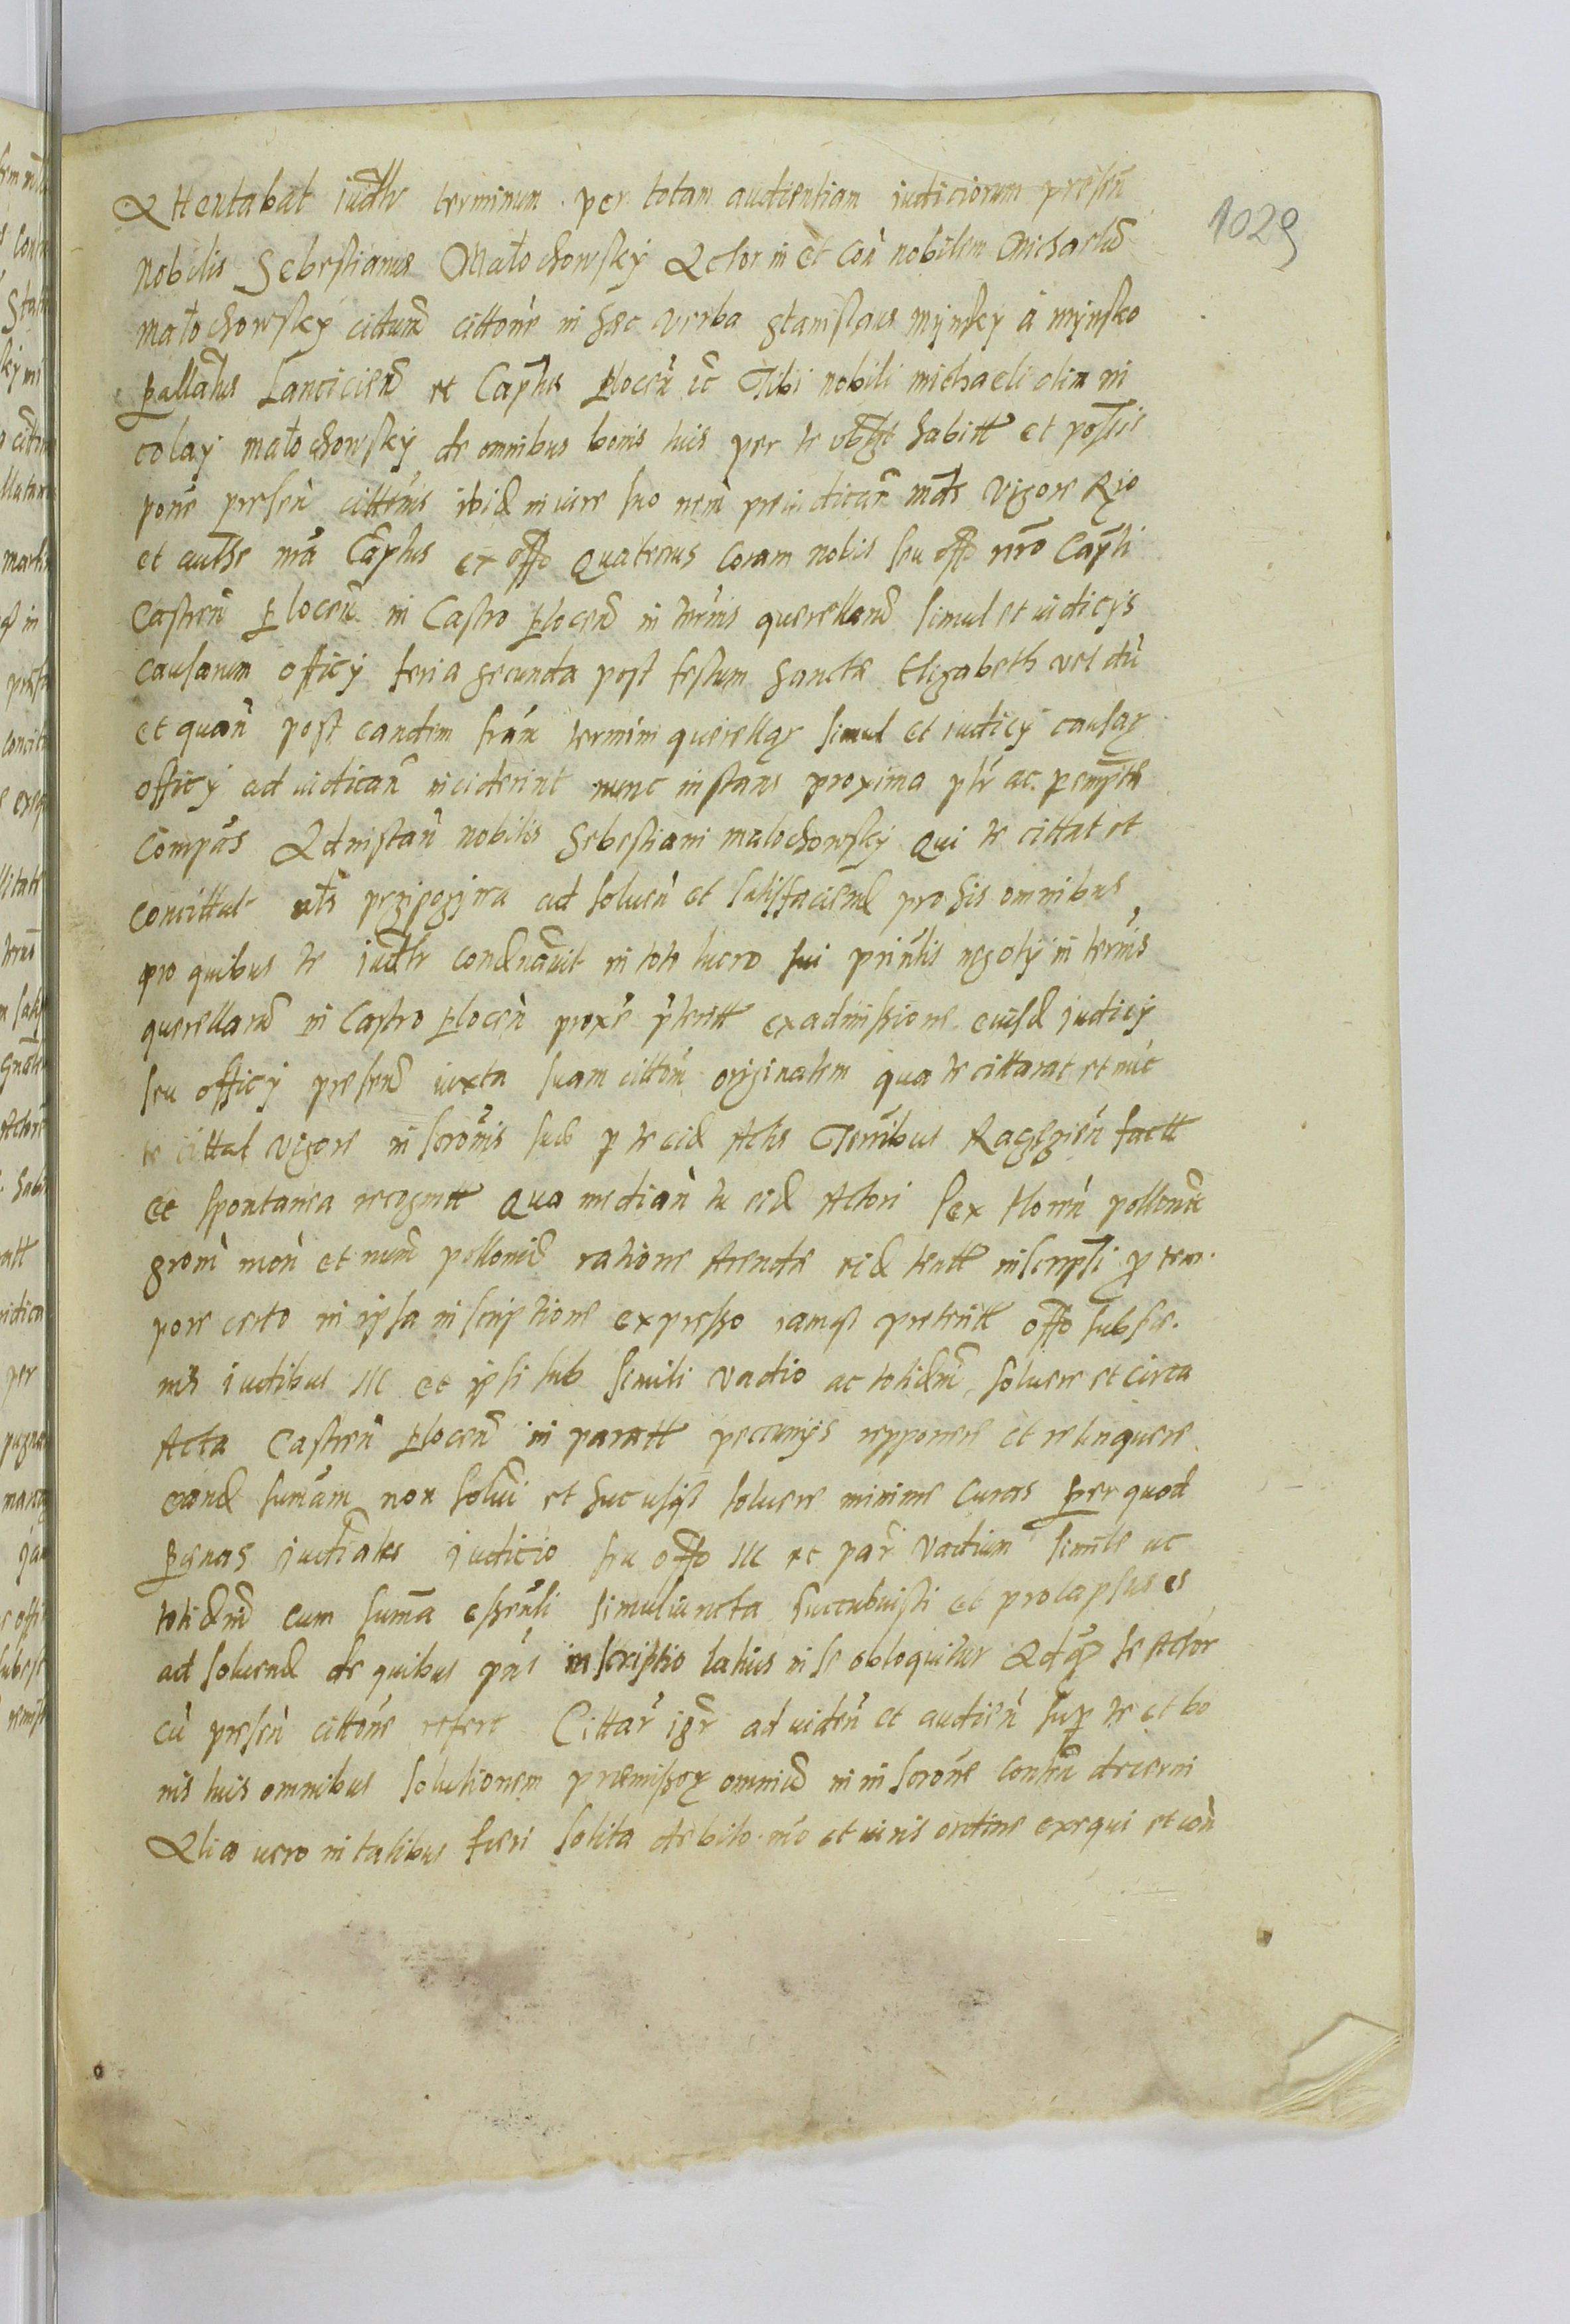 Attentabat iudtr terminum per totam audientiam iudiciorum presen
1029
Nobilis Sebestianus Malochowsky Actor in et con nobilem Michaelem
Malochowsky cittum cittone in haec verba Stanislaus Mynsky a Mynsko
Pallatus Lancicien et Captus Plocen Tibi nobili Michaeli olim ni
colay Malochowsky de omnibus bonis tuis per te habitt et
pone presen cittonis ibid in iure suo nem preiudican mdt vigore Rgo
et autte nra Captus ex offo quatenus coram nobis seu offo nro Capti
Castren Plocen in Castro Plocen in ternis querellarum simul et iudicys
causarum officy feria secunda post festum Sanctae Elizabeth vel dum
et quan post eandem fram termini querellar simul et iudicy causar
officy ad iudican inciderint nunc instans proxima ptr ac pempte
compas Ad instan nobilis Sebestiani Malochowsky qui te cittat et
concittat przipozwa ad soluen et satisfaciend pro his omnibus
pro quibus te iudtr condnavit in toto lucro sui prinlis negoty in ternis
querellarum in Castro Plocen proxe preteritt ex admissione eiusd iudicy
seu officy presen iuxta suam cittom originalem qua te cittarat et nuc
te cittat vigore inscronis sub p te eid Actis Terribus Raczazien factt
et spontanea recognitt qua median tu eid Actori sex floren pollonic
grom mon et num pollonic ratione Arendae eid tentt inscripsti p tem
pore certo in ipsa inscriptione expresso iamqz preteritt offo subsae
nis iudibus III et ipsi sub simili vadio ac totidem soluere et circa
Acta Castren Plocen in paratt pecunys repponere et relinquere
eand sumam non solui et hucusqz soluere minime curas Per quod
Penas iudiales iudicio seu offo III et par vadium simile ac
totidem cum suma essenli simul iuncta succubuisti et prolapsus es
ad soluend de quibus pns inscriptio latius in se obloquitur Ad qz se Actor
cu presen cittone refert Cittar igr ad viden et audien sup te et bo
nis tuis omnibus solutionem praemissor omnium in inscrone content decerni
Alia vero in talibus fieri solita debito mo et iuris ordine exequi et con